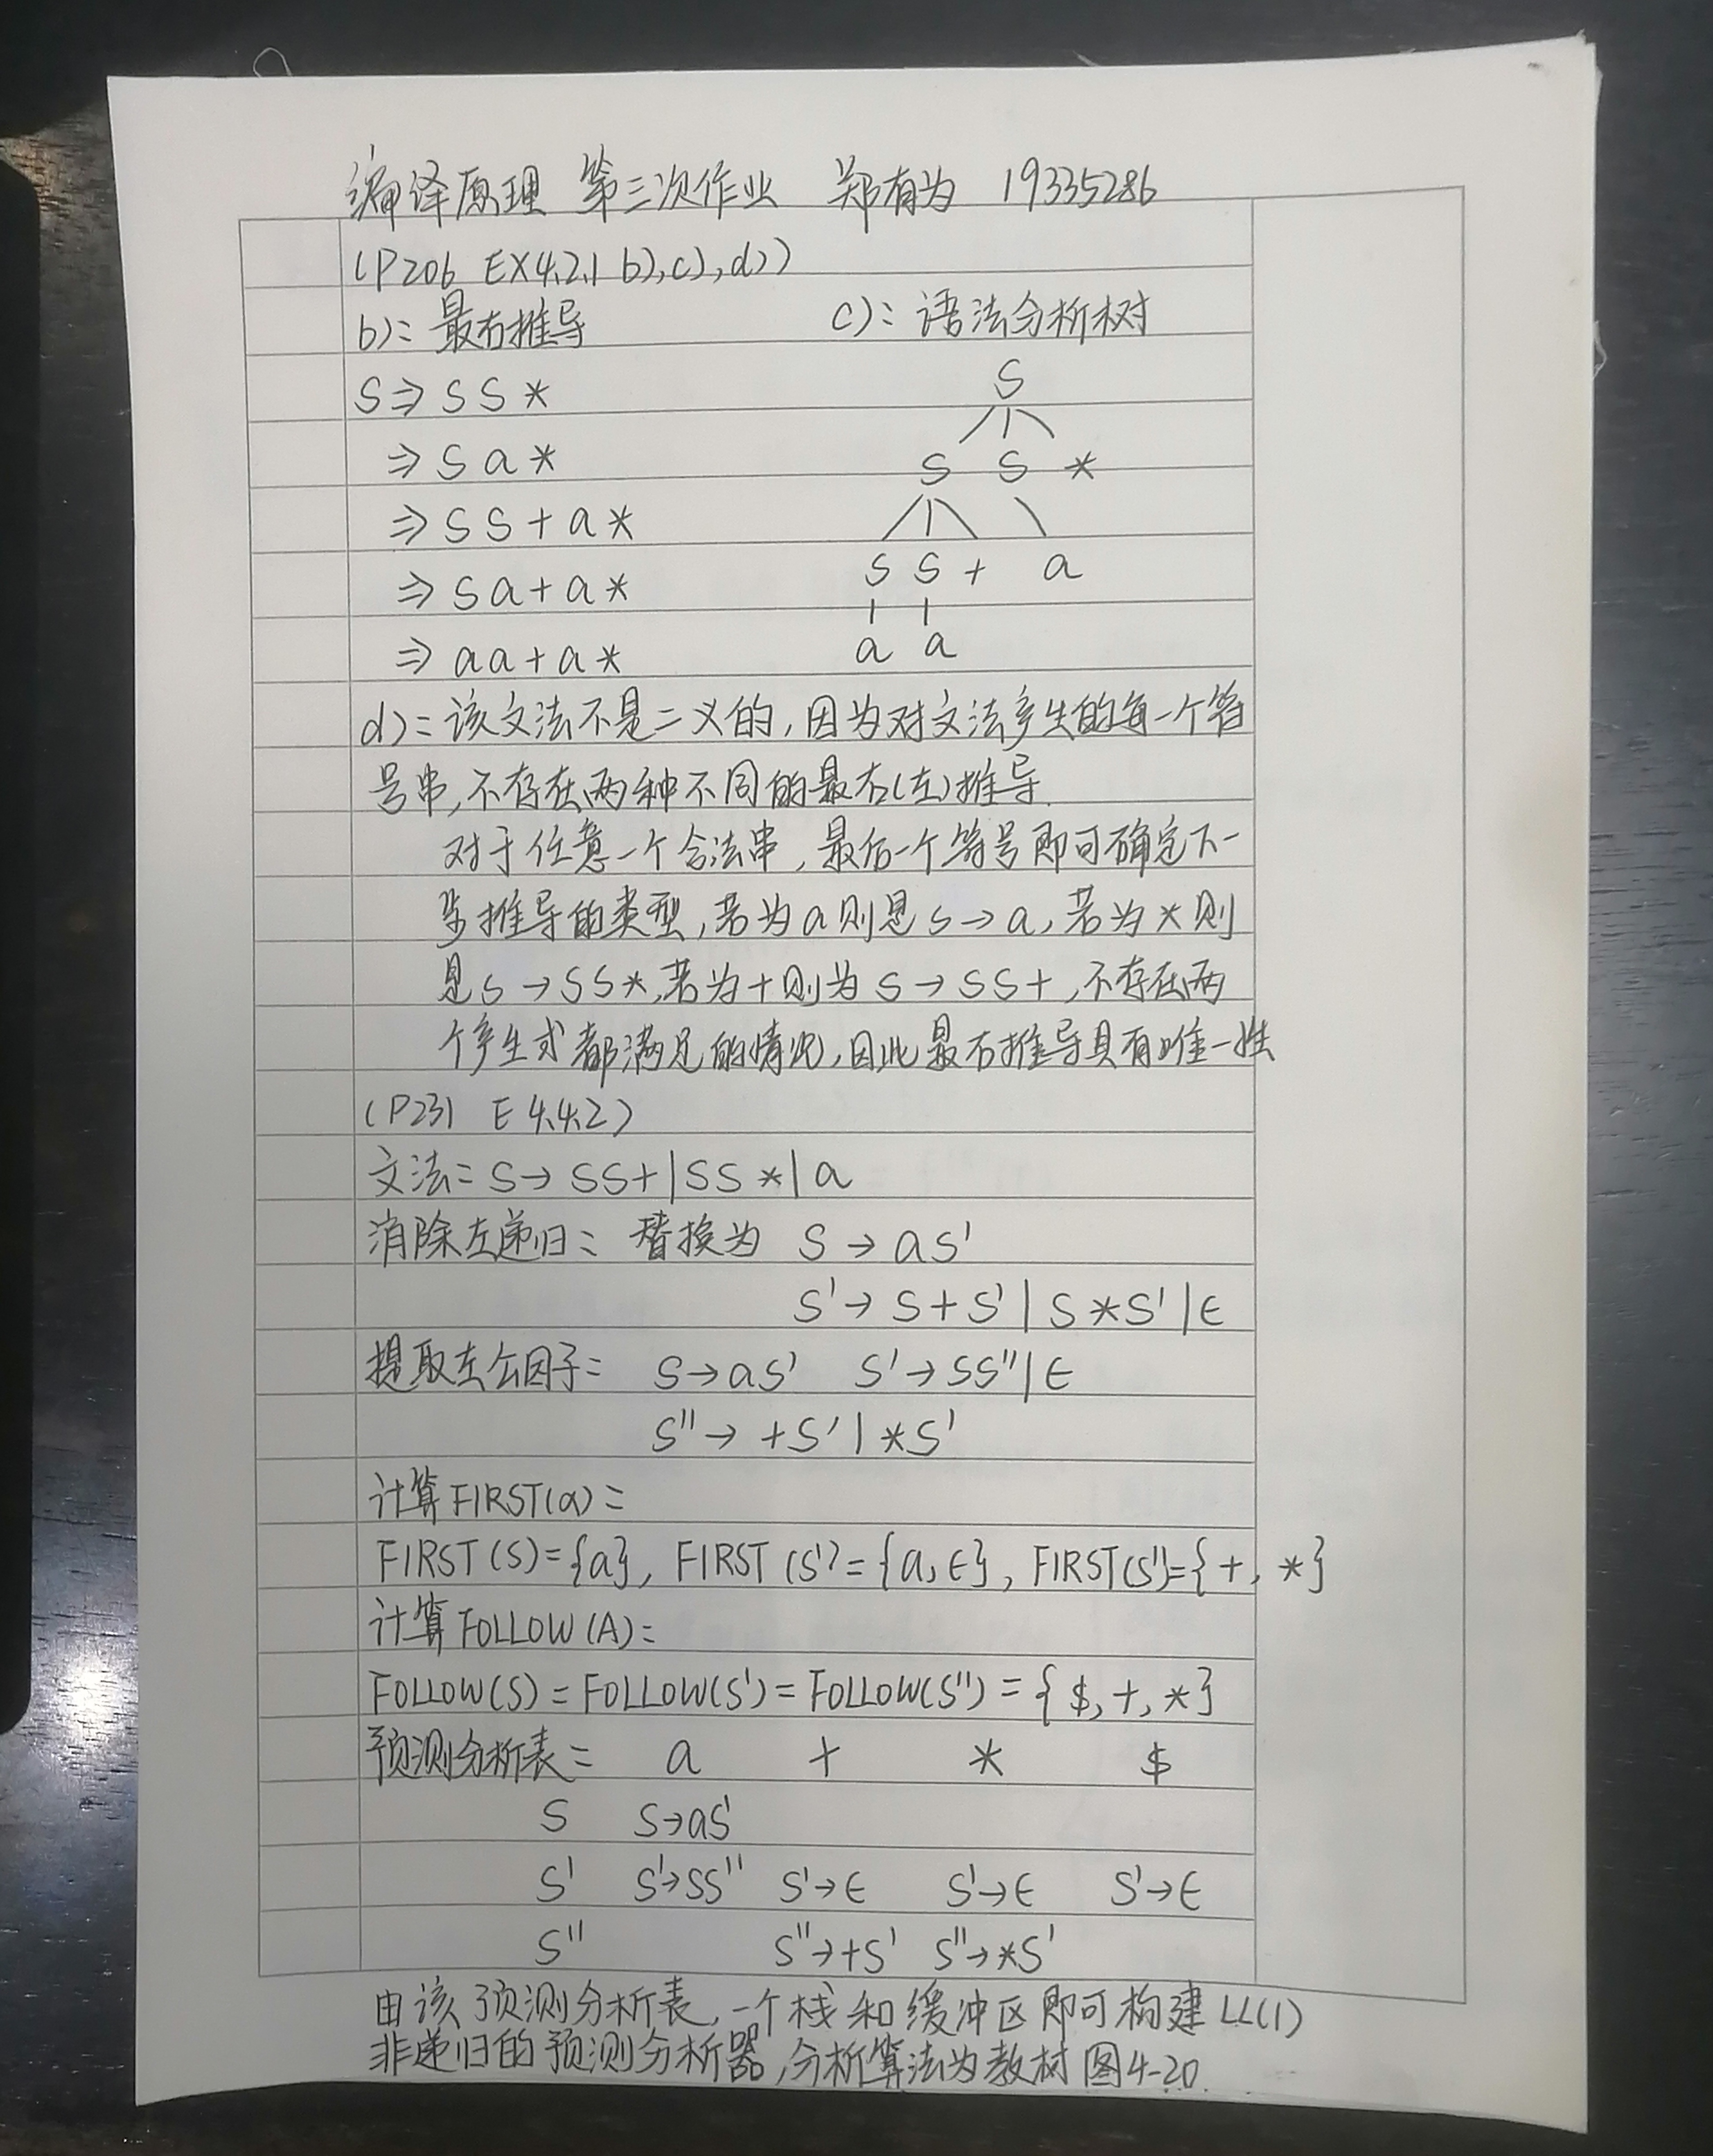 编译原理 第三次作业 郑有为 19335286
(P206 EX4.2.1 b),c),d))
b): 最右推导
c): 语法分析树
S⇒SS*
⇒Sa*
⇒SS+a*
⇒Sa+a*
⇒aa+a*
S
S S *
S S + a
a a
d): 该文法不是二义的,因为对文法产生的每一个符
号串,不存在两种不同的最右(左)推导.
对于任意一个合法串,最后一个符号即可确定下一
步推导的类型,若为a则是S→a,若为*则
是S→SS*,若为+则为S→SS+,不存在两
个产生式都满足的情况,因此最右推导具有唯一性
(P231 E 4.4.2)
文法: S→SS+|SS*|a
消除左递归: 替换为 S→aS'
S'→S+S'|S*S'|ϵ
提取左公因子: S→aS' S'→SS''|ϵ
S''→+S'|*S'
计算FIRST(α):
FIRST(S)={a}, FIRST(S')={a,ϵ}, FIRST(S'')={+,*}
计算FOLLOW(A):
FOLLOW(S)=FOLLOW(S')=FOLLOW(S'')={$,+,*}
预测分析表: a + * $
S S→aS'
S' S'→SS'' S'→ϵ S'→ϵ S'→ϵ
S'' S''→+S' S''→*S'
由该预测分析表,一个栈和缓冲区即可构建LL(1)
非递归的预测分析器,分析算法为教材图4-20.